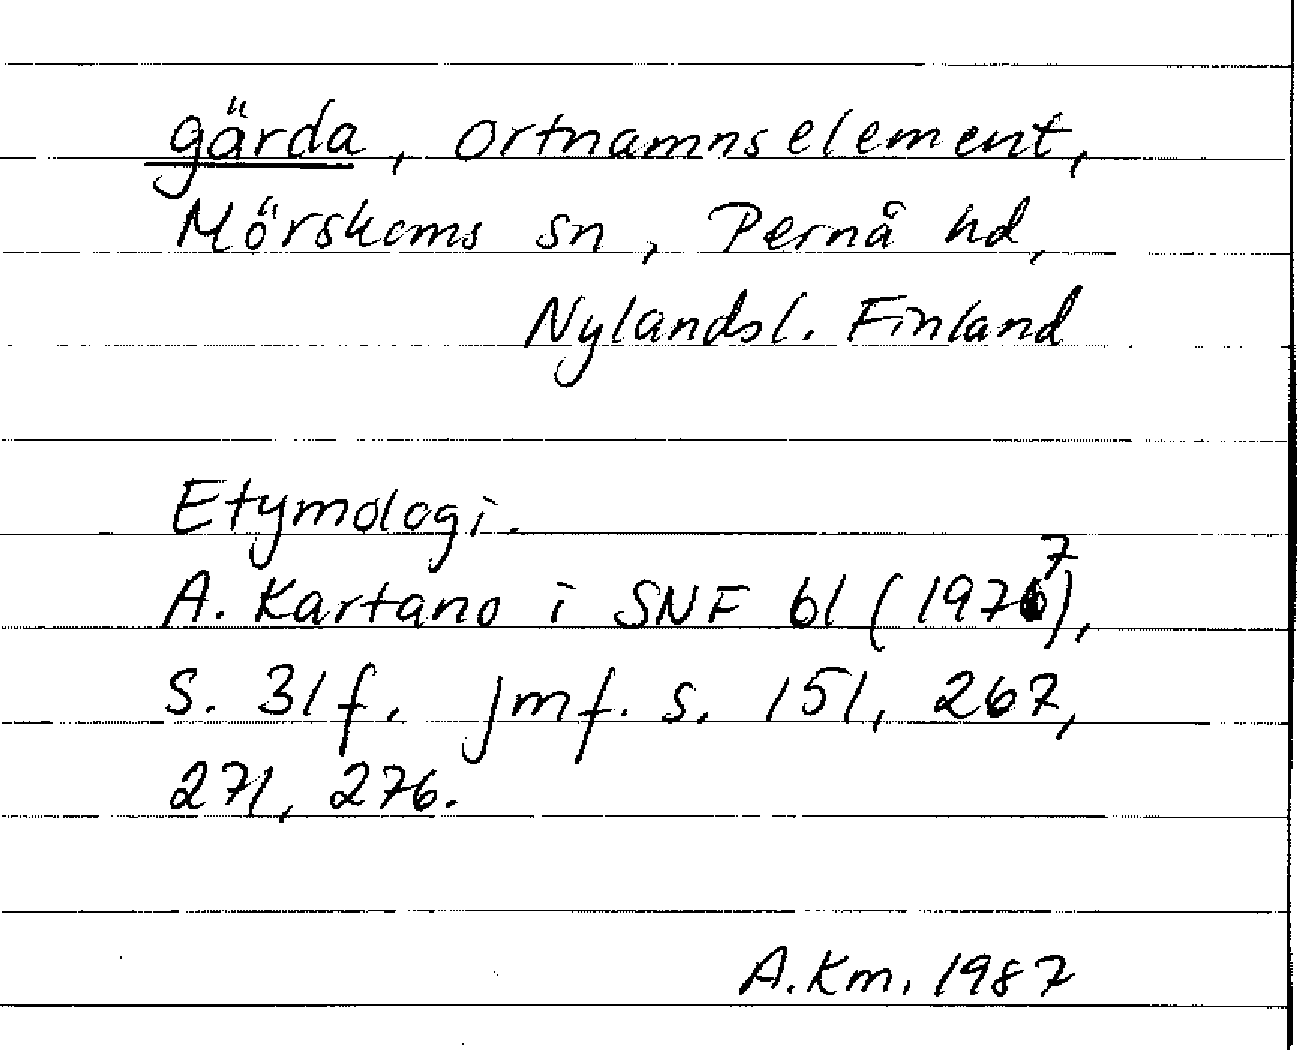 gärda, ortnamnselement,
Mörskoms sn, Pernå hd,
Nylandsl. Finland
Etymologi.
A. Kartano i SNF 61 (1977),
s. 31 f. jmf. s. 151, 267,
271, 276.
A.Km. 1987